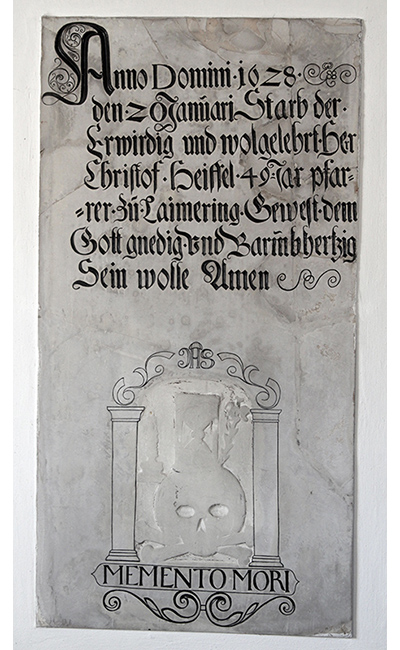 Anno Domini·1628·
den 29 Januari Starb der·
Erwirdig und wolgelehrt·Her
Christof·Heiffel·49·Jar pfar=
=rer·zu·Laimering·Gewest·dem
Gott gnedig·Und Barmhhertzig
Sein wolle Amen
IHS
MEMENTO MORI